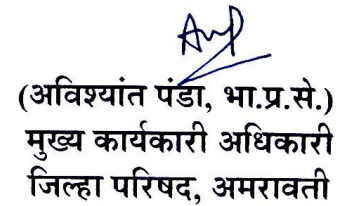 (अविश्यांत पंडा, भा.प्र.से.)
मुख्य कार्यकारी अधिकारी
जिल्हा परिषद, अमरावती